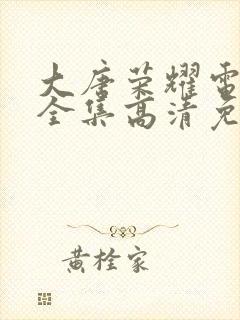 大唐荣耀电
全集高清免
黄栓家